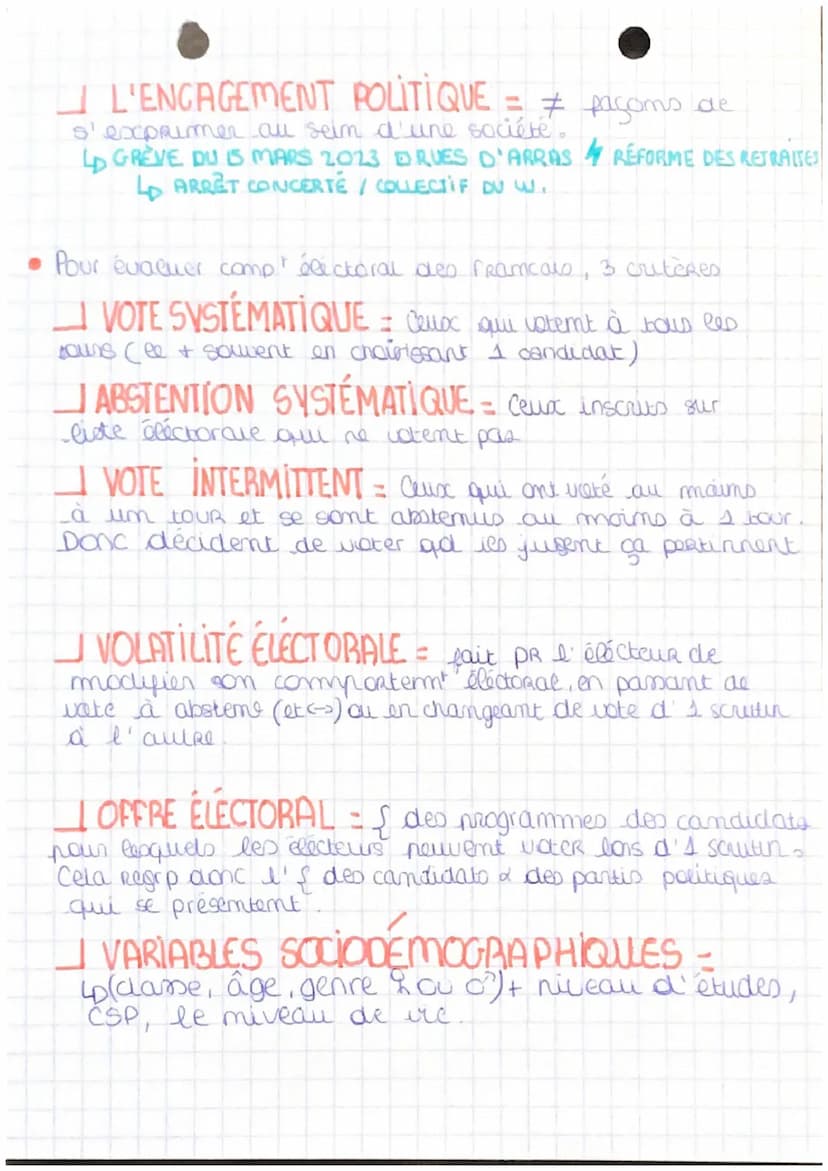 L'ENGAGEMENT POLITIQUE = ≠ façons de
s'exprimer au sein d'une société.
↳ GRÈVE DU 15 MARS 2023 RUES D'ARRAS ↯ RÉFORME DES RETRAITES
↳ ARRÊT CONCERTÉ / COLLECTIF DU W.
• Pour évaluer compt élèctoral des Francais, 3 critères
VOTE SYSTÉMATIQUE = Ceux qui votent à tous les
tours (le + souvent en choisissant 1 candidat)
ABSTENTION SYSTÉMATIQUE = Ceux inscrits sur
liste éléctorale qui ne votent pas
VOTE INTERMITTENT = Ceux qui ont voté au moins
à un tour et se sont abstenus au moins à 1 tour.
Donc décident de voter qd ils jugent ça pertinnent
VOLATILITÉ ÉLÉCTORALE = fait PR l'élécteur de
modifier son comportemt éléctoral, en passant de
vote à abstent (et ↔) ou en changeant de vote d'1 scrutin
à l'autre.
OFFRE ÉLÉCTORAL = { des programmes des candidats
pour lesquels les élécteurs peuvent voter lors d'1 scrutin.
Cela regrp donc l'{ des candidats & des partis politiques
qui se présentent.
VARIABLES SOCIODÉMOGRAPHIQUES =
↳ (classe, âge, genre ♀ ou ♂) + niveau d'études,
CSP, le niveau de